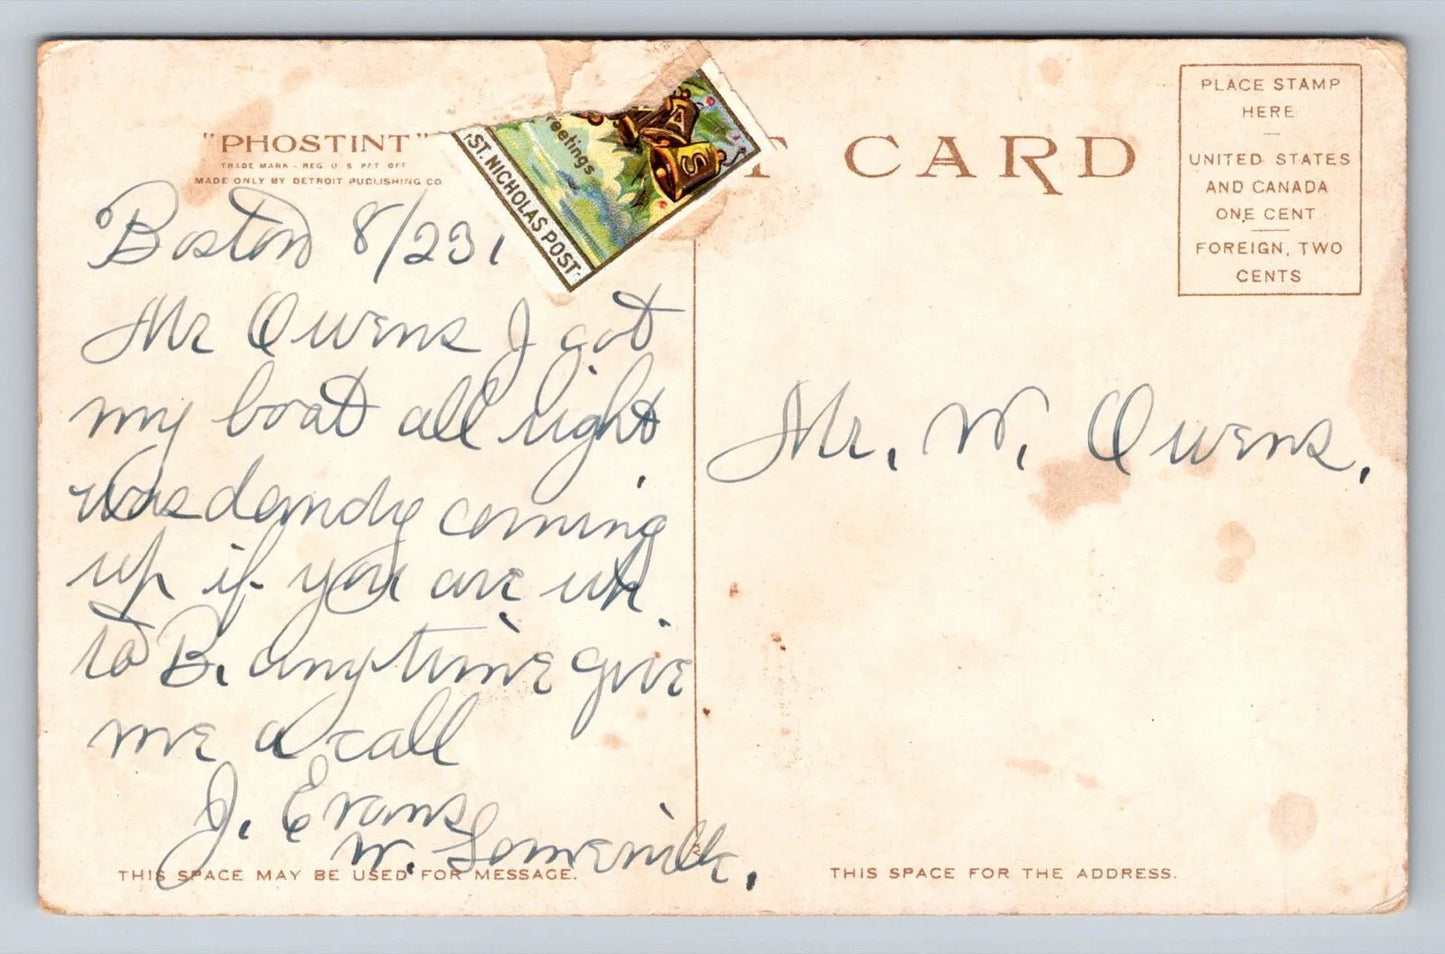 "PHOSTINT"
TRADE MARK - REG. U S PAT OFF
MADE ONLY BY DETROIT PUBLISHING CO.
CARD
PLACE STAMP
HERE
UNITED STATES
AND CANADA
ONE CENT.
FOREIGN, TWO
CENTS
reetings
AS
ST. NICHOLAS POST
Boston 8/23,
Mr Owens I got
my boat all right
was dandy coming
up if you are up
to B. anytime give
me a call
J. Evans
W. Somerville.
Mr. W. Owens.
THIS SPACE MAY BE USED FOR MESSAGE.
THIS SPACE FOR THE ADDRESS.